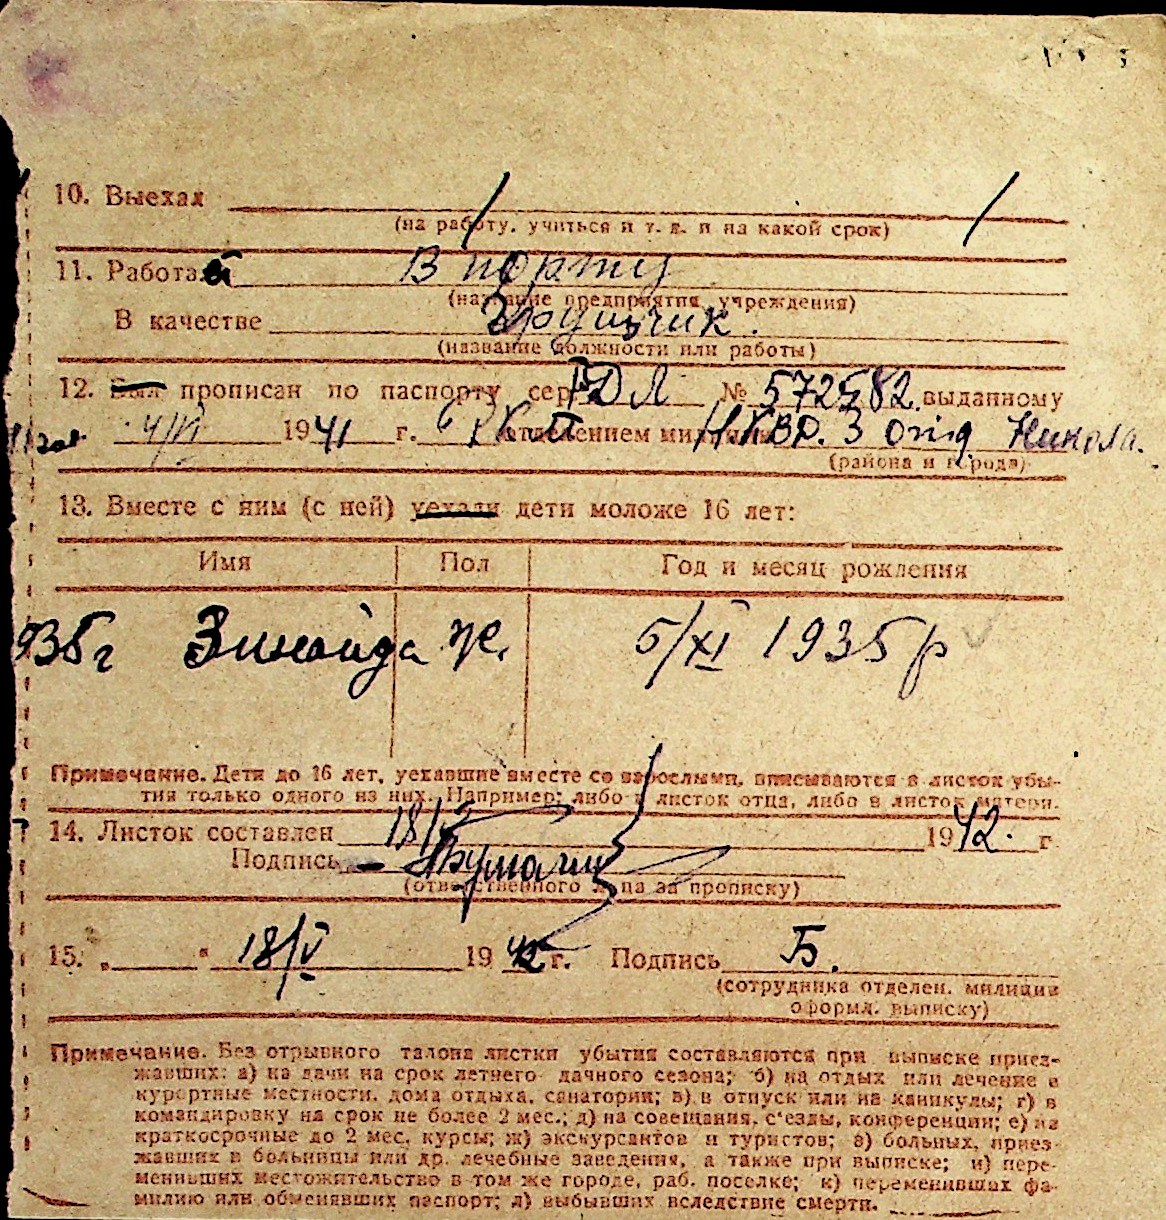 10. Выехал
(на работу, учиться и т. д. и на какой срок)
11. Работает В порту
(название предприятия, учреждения)
В качестве Грущчик.
(название должности или работы)
12. Был прописан по паспорту сер. ДЛ № 572582 выданному
4/VI 1941 г. отделением милиции Н.КВД. 3 Никола.
(района и города)
13. Вместе с ним (с ней) уехали дети моложе 16 лет:
Имя Пол Год и месяц рождения
935г Зинаида Ж. 5/XI 1935 р
Примечание. Дети до 16 лет, уехавшие вместе со взрослыми, вписываются в листок убы-
тия только одного из них. Например: либо в листок отца, либо в листок матери.
14. Листок составлен 18/V 1942. г
Подпись
(ответственного лица за прописку)
15. „ " 18/V 1942 г. Подпись Б.
(сотрудника отделен. милиции
оформл. выписку)
Примечание. Без отрывного талона листки убытия составляются при выписке приез-
жавших: а) на дачи на срок летнего дачного сезона; б) на отдых или лечение в
курортные местности, дома отдыха, санатории; в) в отпуск или на каникулы; г) в
командировку на срок не более 2 мес.; д) на совещания, с'езды, конференции; е) на
краткосрочные до 2 мес. курсы; ж) экскурсантов и туристов; з) больных, приез-
жавших в больницы или др. лечебные заведения, а также при выписке; и) пере-
менивших местожительство в том же городе, раб. поселке; к) переменивших фа-
милию или обменявших паспорт; л) выбывших вследствие смерти.